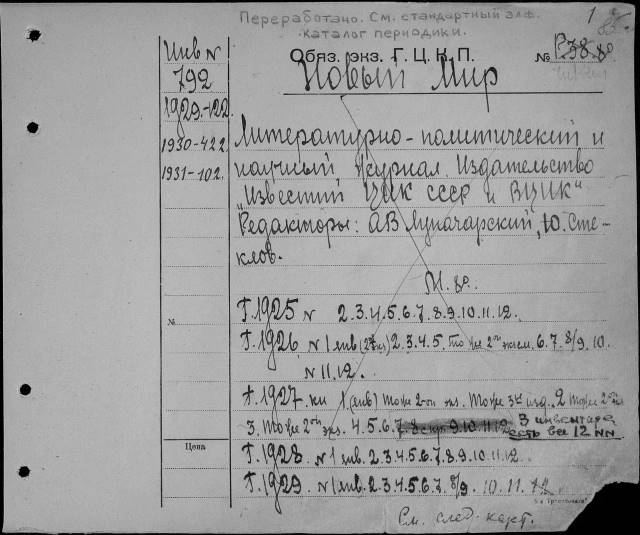 Переработано. См. стандартный алф.
каталог периодики.
1
Инв N
792
1929-122
1930-422
1931-102.
Обяз. экз. Г. Ц. К. П.
№ P.38 8°
Новый Мир
Литературно-политический и
научный журнал. Издательство
"Известий ЦИК СССР и ВЦИК"
Редакторы: АВ Луначарский, Ю. Сте-
клов.
М. 8°.
Г. 1925 N 2.3.4.5.6.7.8.9.10.11.12.
Г. 1926 N 1 янв 2.3.4.5. То же 2ой экзем. 6.7.8/9.10.
N 11.12.
Г. 1927. кн 1 (янв) То же 2-ой экз. То же 3 изд. 2 То же 2ой
3. То же 2ой экз. 4.5.6.7.8 9.10.11.12 В инвентаре
есть все 12 NN
Г. 1928 N 1 янв. 2.3.4.5.6.7.8.9.10.11.12.
Г. 1929 N 1 янв. 2.3.4.5.6.7.8/9. 10.11.12
№
Цена
См. след. карт.